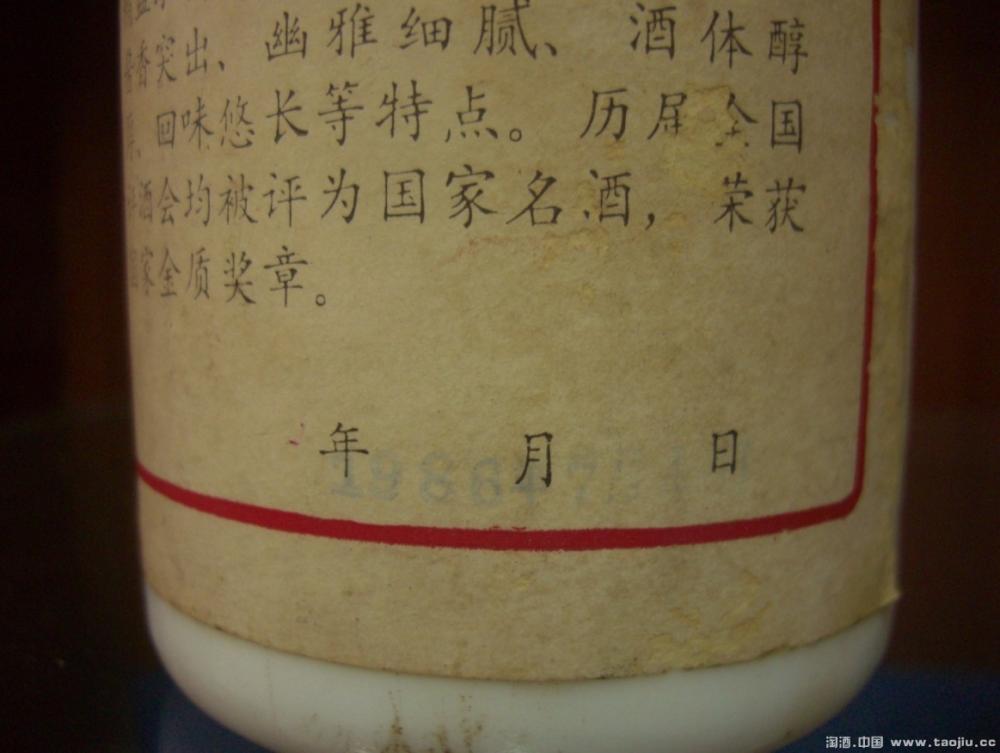 香突出、幽雅细腻、酒体醇
回味悠长等特点。历届全国
评酒会均被评为国家名酒，荣获
国家金质奖章。
年 月 日
淘酒.中国 www.taojiu.cc